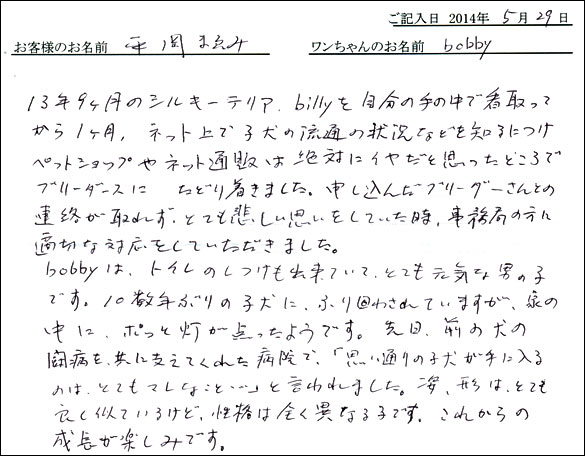 ご記入日 2014年 5月29日
お客様のお名前 平岡 まゑみ ワンちゃんのお名前 bobby
13年9ヶ月のシルキーテリア、billyを自分の手の中で看取って
から1ヶ月、ネット上で子犬の流通の状況などを知るにつけ
ペットショップやネット通販は絶対にイヤだと思ったところで
ブリーダースに たどり着きました。申し込んだブリーダーさんとの
連絡が取れず、とても悲しい思いをしていた時、事務局の方に
適切な対応をしていただきました。
bobbyは、トイレのしつけも出来ていて、とても元気な男の子
です。10数年ぶりの子犬に、ふり回わされていますが、家の
中に、ポッと灯が点ったようです。先日、前の犬の
闘病を、共に支えてくれた病院で、「思い通りの子犬が手に入る
のは、とてもマレなこと…」と言われました。姿、形は、とても
良く似ているけど、性格は全く異なる子です。これからの
成長が楽しみです。